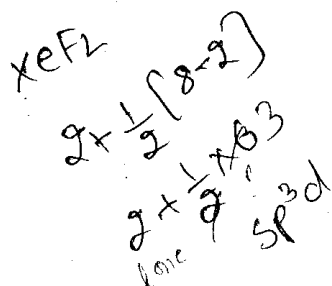 XeF2
2 + 1/2 [8-2]
2 + 1/2 × 6 3
lone sp3d